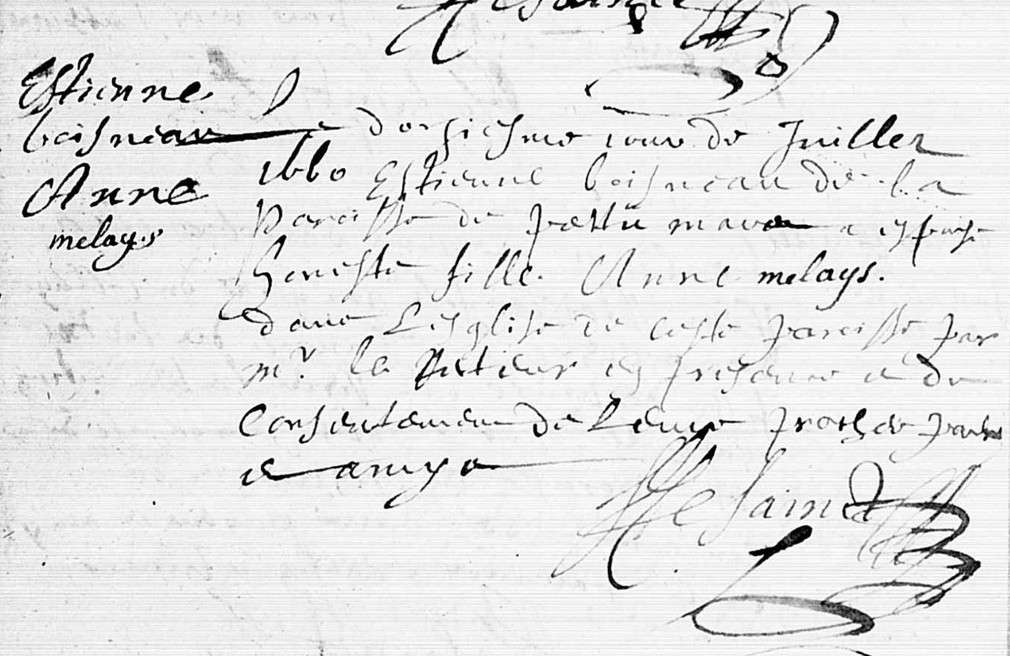 Estienne
boisneau
Anne
melays
Le dousiesme jour de Juillet
1660 Estienne boisneau de la
Paroisse de a espouse
honeste fille Anne melays.
dans L'esglise de ceste paroisse par
mr. le en presence et de
Consentement de Leurs proches parens
et amys
H le saint